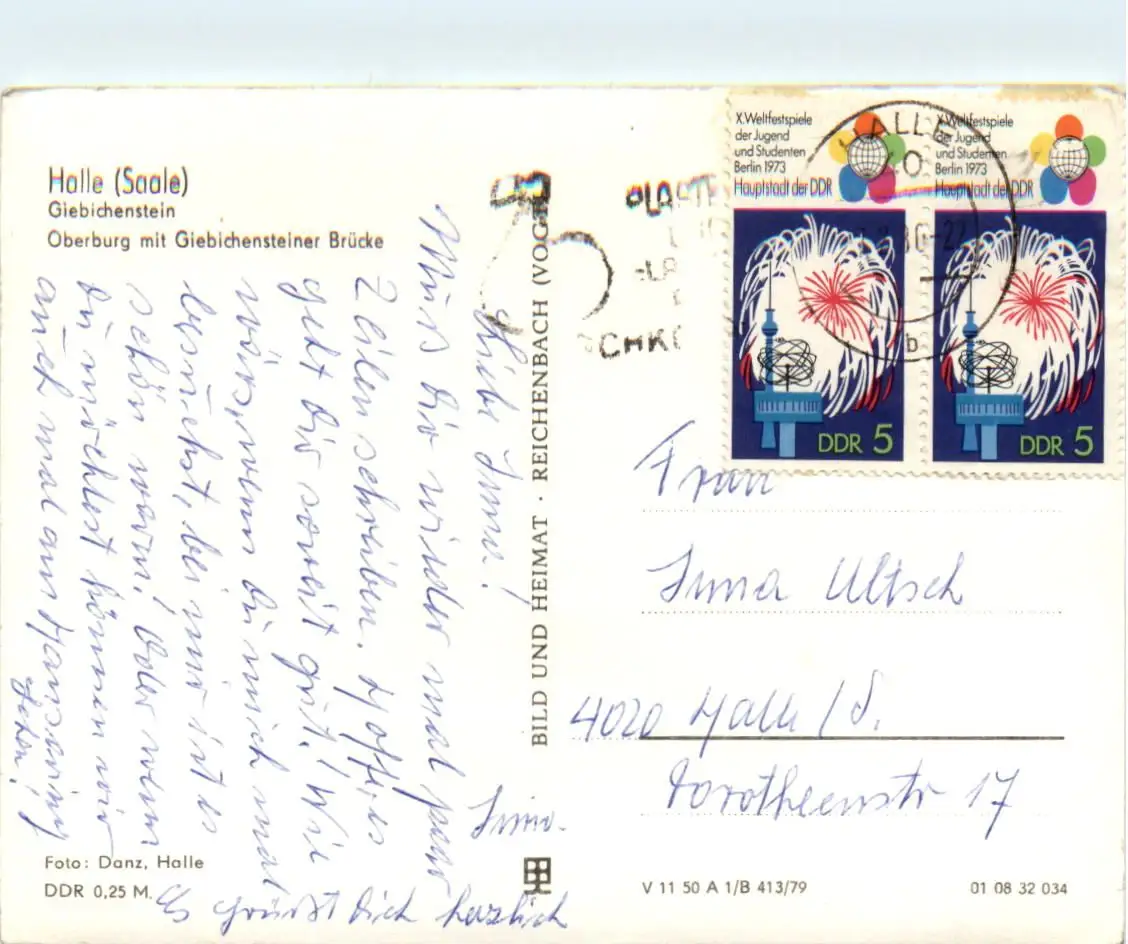 Halle (Saale)
Giebichenstein
Oberburg mit Giebichensteiner Brücke
Liebe Irma!
Muss dir wieder mal paar
Zeilen schreiben. Hoff es
geht dir soweit gut! Wie
wärs, wenn du mich mal
besuchst, bei mir ist es
schön warm! Oder wenn
du möchtest können wir
auch mal am Hansering
gehen!
Es grüßt Dich herzlich
Irma.
Foto: Danz, Halle
DDR 0,25 M.
BILD UND HEIMAT · REICHENBACH (VOG
PLASTE
CHK
HALLE
b
X. Weltfestspiele
der Jugend
und Studenten
Berlin 1973
Hauptstadt der DDR
DDR 5
X. Weltfestspiele
der Jugend
und Studenten
Berlin 1973
Hauptstadt der DDR
DDR 5
Frau
Irma Ultsch
4020 Halle / S.
Dorotheenstr 17
V 11 50 A 1/B 413/79
01 08 32 034